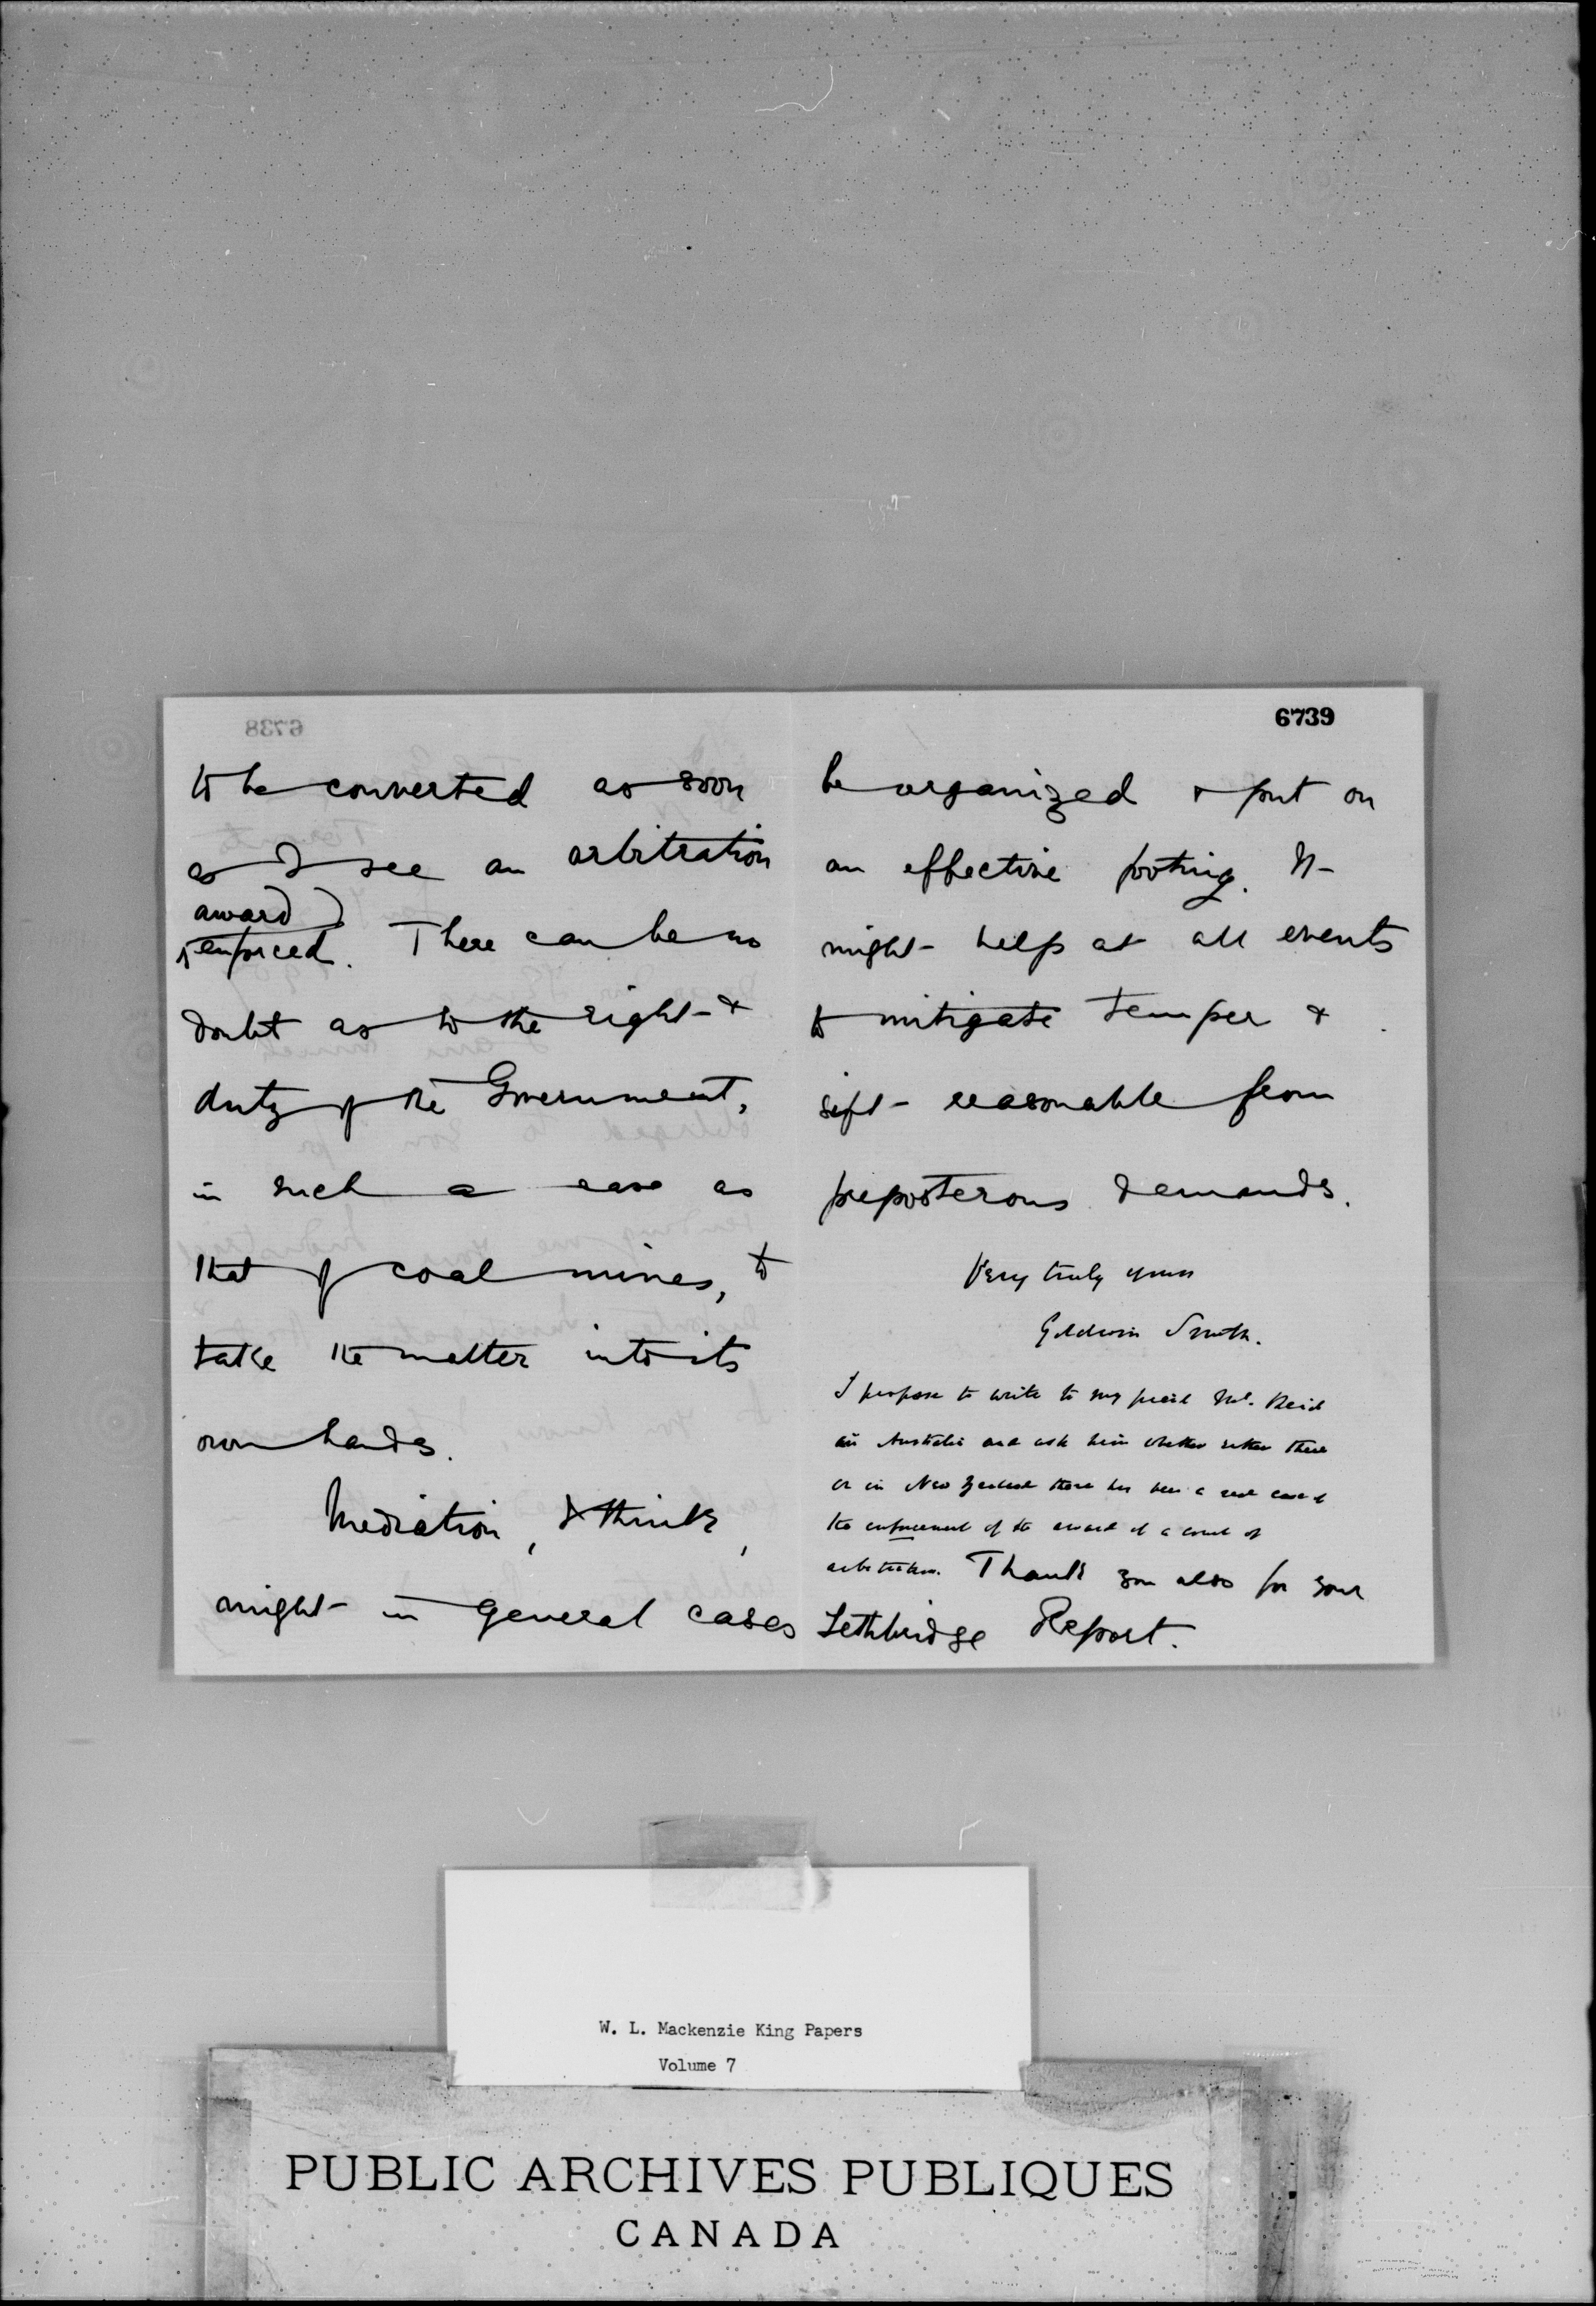 to be converted as soon
as I see an arbitration
award
enforced. There can be no
doubt as to the right &
duty of the Government,
in such a case as
that of coal mines, to
take the matter into its
own hands.
Mediation, I think,
might in general cases
6739
be organized & put on
an effective footing. It
might help at all events
to mitigate temper &
sift reasonable from
preposterous demands.
Very truly yours
Goldwin Smith.
I propose to write to my friend Reid
in Australia and ask him whether either there
or in New Zealand there has been a real case of
the enforcement of the award of a court of
arbitration. Thank you also for your
Lethbridge Report.
W. L. Mackenzie King Papers
Volume 7
PUBLIC ARCHIVES PUBLIQUES
CANADA